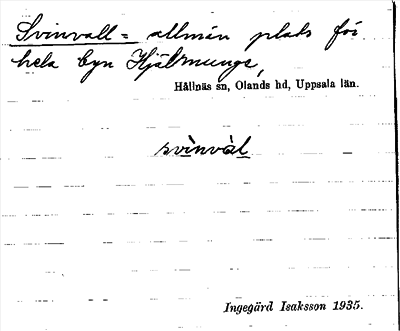 Svinvall = allmän plats för
hela byn Hjälmunge,
Hållnäs sn, Olands hd, Uppsala län.
svìnväl
Ingegärd Isaksson 1935.